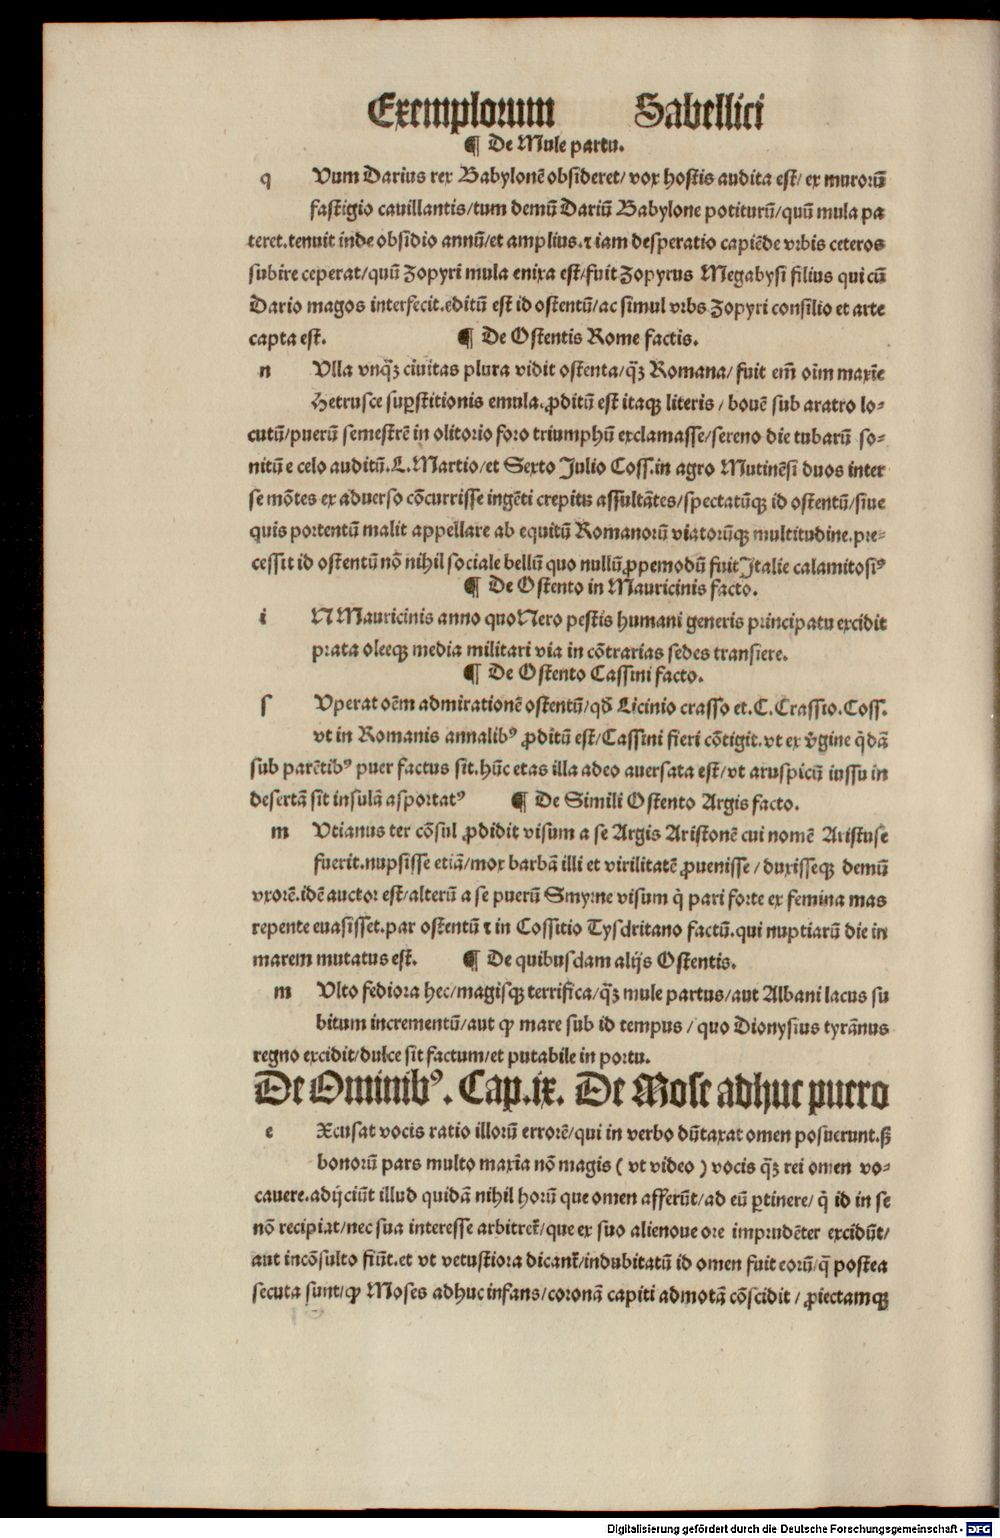 Exemplorum Sabellici
¶ De Mule partu.
q Vum Darius rex Babylonē obsideret/ vox hostis audita est/ ex murorū
fastigio cauillantis/tum demū Dariū Babylone potiturū/quū mula pa
teret.tenuit inde obsidio annū/et amplius.⁊ iam desperatio capiēde vrbis ceteros
subire ceperat/quū Zopyri mula enixa est/fuit Zopyrus Megabysi filius qui cū
Dario magos interfecit.editū est id ostentū/ac simul vrbs Zopyri consilio et arte
capta est. ¶ De Ostentis Rome factis.
n Vlla vnꝗ̈ꝫ ciuitas plura vidit ostenta/ꝗ̈ꝫ Romana/ fuit em̄ oīm maxīe
Hetrusce suꝑstitionis emula.ꝓditū est itaqꝫ literis / bouē sub aratro lo-
cutū/puerū semestrē in olitorio foro triumphū exclamasse/sereno die tubarū so-
nitū e celo auditū.L.Martio/et Sexto Julio Coss.in agro Mutinēsi duos inter
se mōtes ex aduerso cōcurrisse ingēti crepitu assultātes/spectatūqꝫ id ostentū/siue
quis portentū malit appellare ab equitū Romanorū viatorūqꝫ multitudine.pre-
cessit id ostentū nō nihil sociale bellū quo nullū ꝓpemodū fuit Italie calamitosiꝰ
¶ De Ostento in Mauricinis facto.
i N Mauricinis anno quo Nero pestis humani generis principatu excidit
prata oleeqꝫ media militari via in cōtrarias sedes transiere.
¶ De Ostento Cassini facto.
ſ Vperat oēm admirationē ostentū/qđ Licinio crasso et.C.Crassio.Coss.
vt in Romanis annalibꝰ ꝓditū est/Cassini fieri cōtigit.vt ex v̄gine q̄dā
sub parētibꝰ puer factus sit.hūc etas illa adeo auersata est/vt aruspicū iussu in
desertā sit insulā asportatꝰ ¶ De Simili Ostento Argis facto.
m Vtianus ter cōsul ꝓdidit visum a se Argis Aristonē cui nomē Aristuse
fuerit.nupsisse etiā/mox barbā illi et virilitatē ꝓuenisse / duxisseqꝫ demū
vxorē.idē auctor est/alterū a se puerū Smyrne visum q̇ pari forte ex femina mas
repente euasisset.par ostentū ⁊ in Cossitio Tysdritano factū.qui nuptiarū die in
marem mutatus est. ¶ De quibusdam alijs Ostentis.
m Vlto fediora hec/magisqꝫ terrifica/ꝗ̈ꝫ mule partus/aut Albani lacus su
bitum incrementū/aut ꝙ mare sub id tempus / quo Dionysius tyrānus
regno excidit/dulce sit factum/et putabile in portu.
De Ominibꝰ. Cap.ix. De Mose adhuc puero
e Xcusat vocis ratio illorū errorē/qui in verbo dūtaxat omen posuerunt.ꝭ
bonorū pars multo maxīa nō magis ( vt video ) vocis ꝗ̈ꝫ rei omen vo-
cauere.adijciūt illud quidā nihil horū que omen afferūt/ad eū ꝑtinere/ q̇ id in se
nō recipiat/nec sua interesse arbitret̄/que ex suo alienoue ore imprudēter excidūt/
aut incōsulto fiūt.et vt vetustiora dicant̄/indubitatū id omen fuit eorū/q̄ postea
secuta sunt/ꝙ Moses adhuc infans/coronā capiti admotā cōscidit / ꝓiectamqꝫ
Digitalisierung gefördert durch die Deutsche Forschungsgemeinschaft - DFG